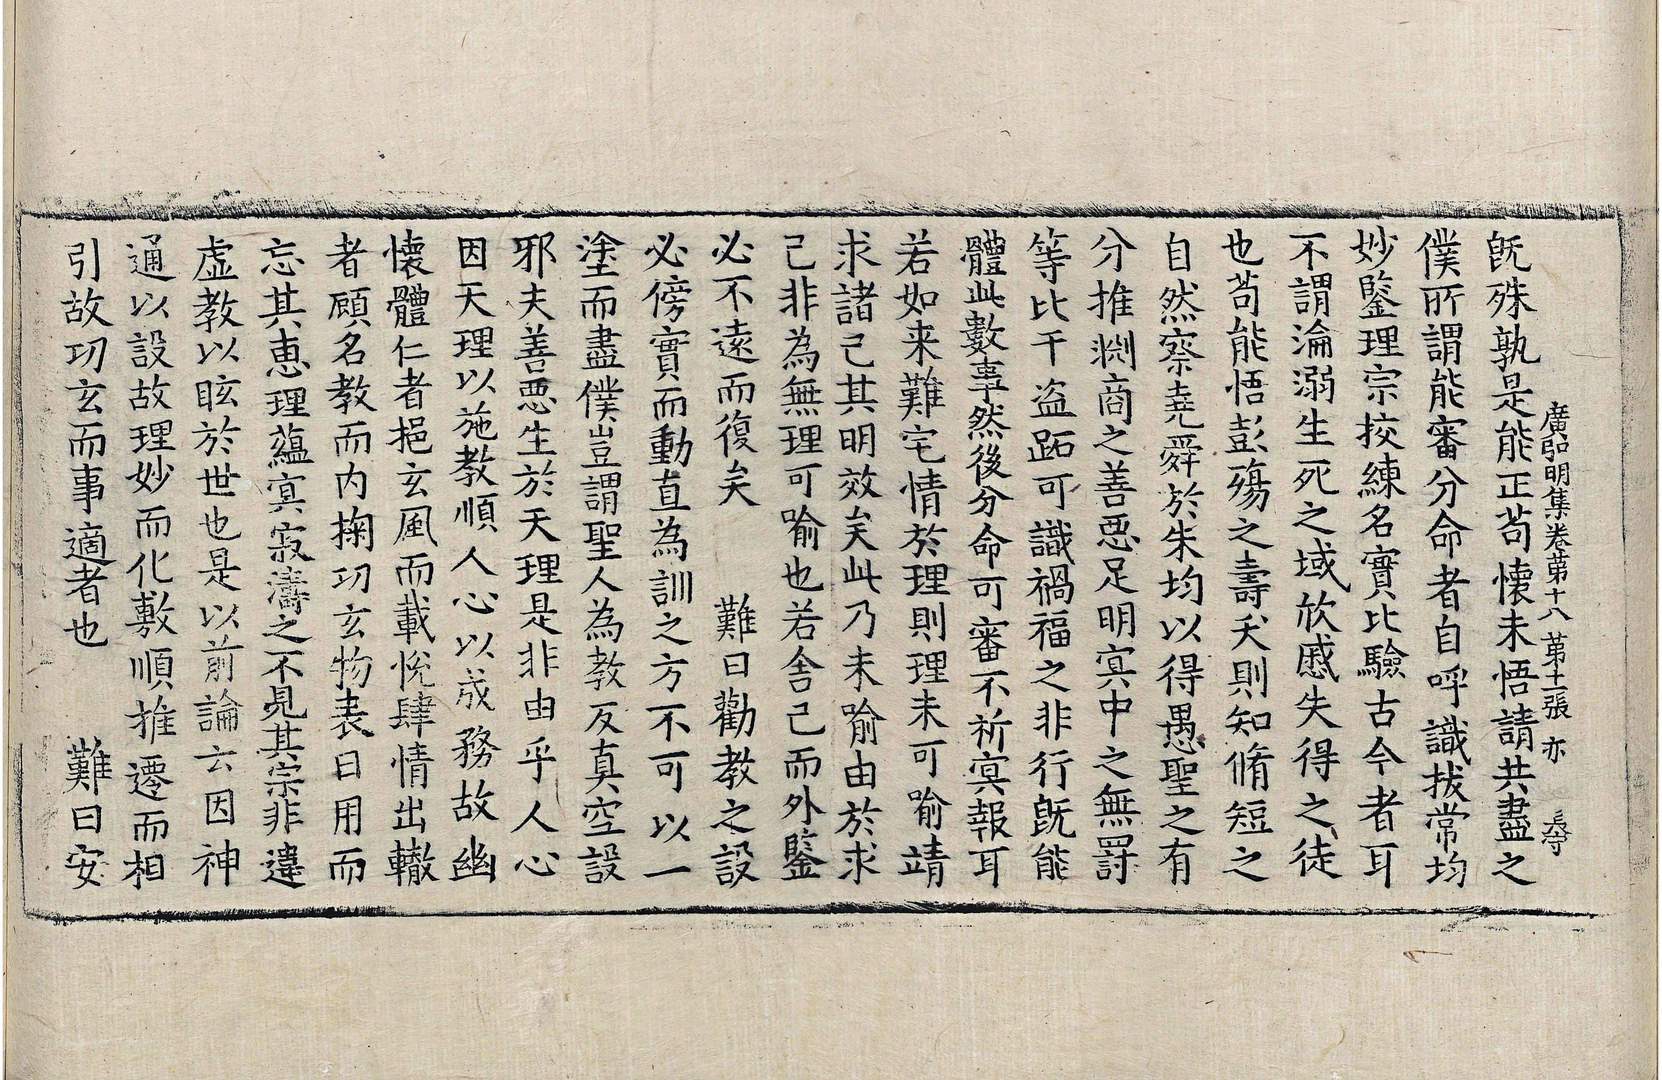 廣弘明集卷第十八 第十一張 亦
旣殊孰是能正苟懷未悟請共盡之
僕所謂能審分命者自呼識拔常均
妙鑒理宗挍練名實比驗古今者耳
不謂淪溺生死之域欣慼失得之徒
也苟能悟彭殤之壽夭則知脩短之
自然察堯舜於朱均以得愚聖之有
分推渊商之善惡足明㝠中之無罸
等比干盗跖可識禍福之非行旣能
體此數事然後分命可審不祈㝠報耳
若如来難宅情於理則理未可喻請
求諸己其明效矣此乃未喻由於求
己非為無理可喻也若舍己而外鑒
必不遠而復矣 難曰勸教之設
必傍實而動直為訓之方不可以一
塗而盡僕豈謂聖人為教反真空設
邪夫善惡生於天理是非由乎人心
因天理以施教順人心以成務故幽
懷體仁者挹玄風而載悅肆情出轍
者顧名教而内掬功玄物表日用而
忘其惠理藴㝠寂濤之不見其宗非違
虚教以眩於世也是以前論云因神
通以設故理妙而化敷順推遷而相
引故功玄而事適者也 難曰安